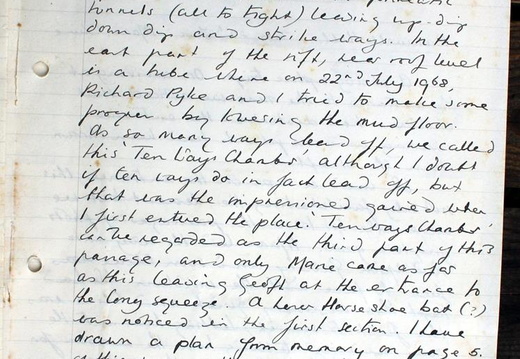 tunnels (all to tight) leading up-dip
down dip and strike ways. In the
east part of the rift, near roof level
is a tube where on 22nd July 1968,
Richard Pyke and I tried to make some
progress by lowering the mud floor.
As so many ways lead off, we called
this 'Ten Ways Chamber' although I doubt
if ten ways do in fact lead off, but
that was the impressioned gained when
I first entered the place. 'Ten ways Chamber'
can be regarded as the third part of this
passage, and only Marie came as far
as this leaving Geoff at the entrance to
the long squeeze. A lesser Horseshoe bat (?)
was noticed in the first section. I have
drawn a plan from memory on page 5.